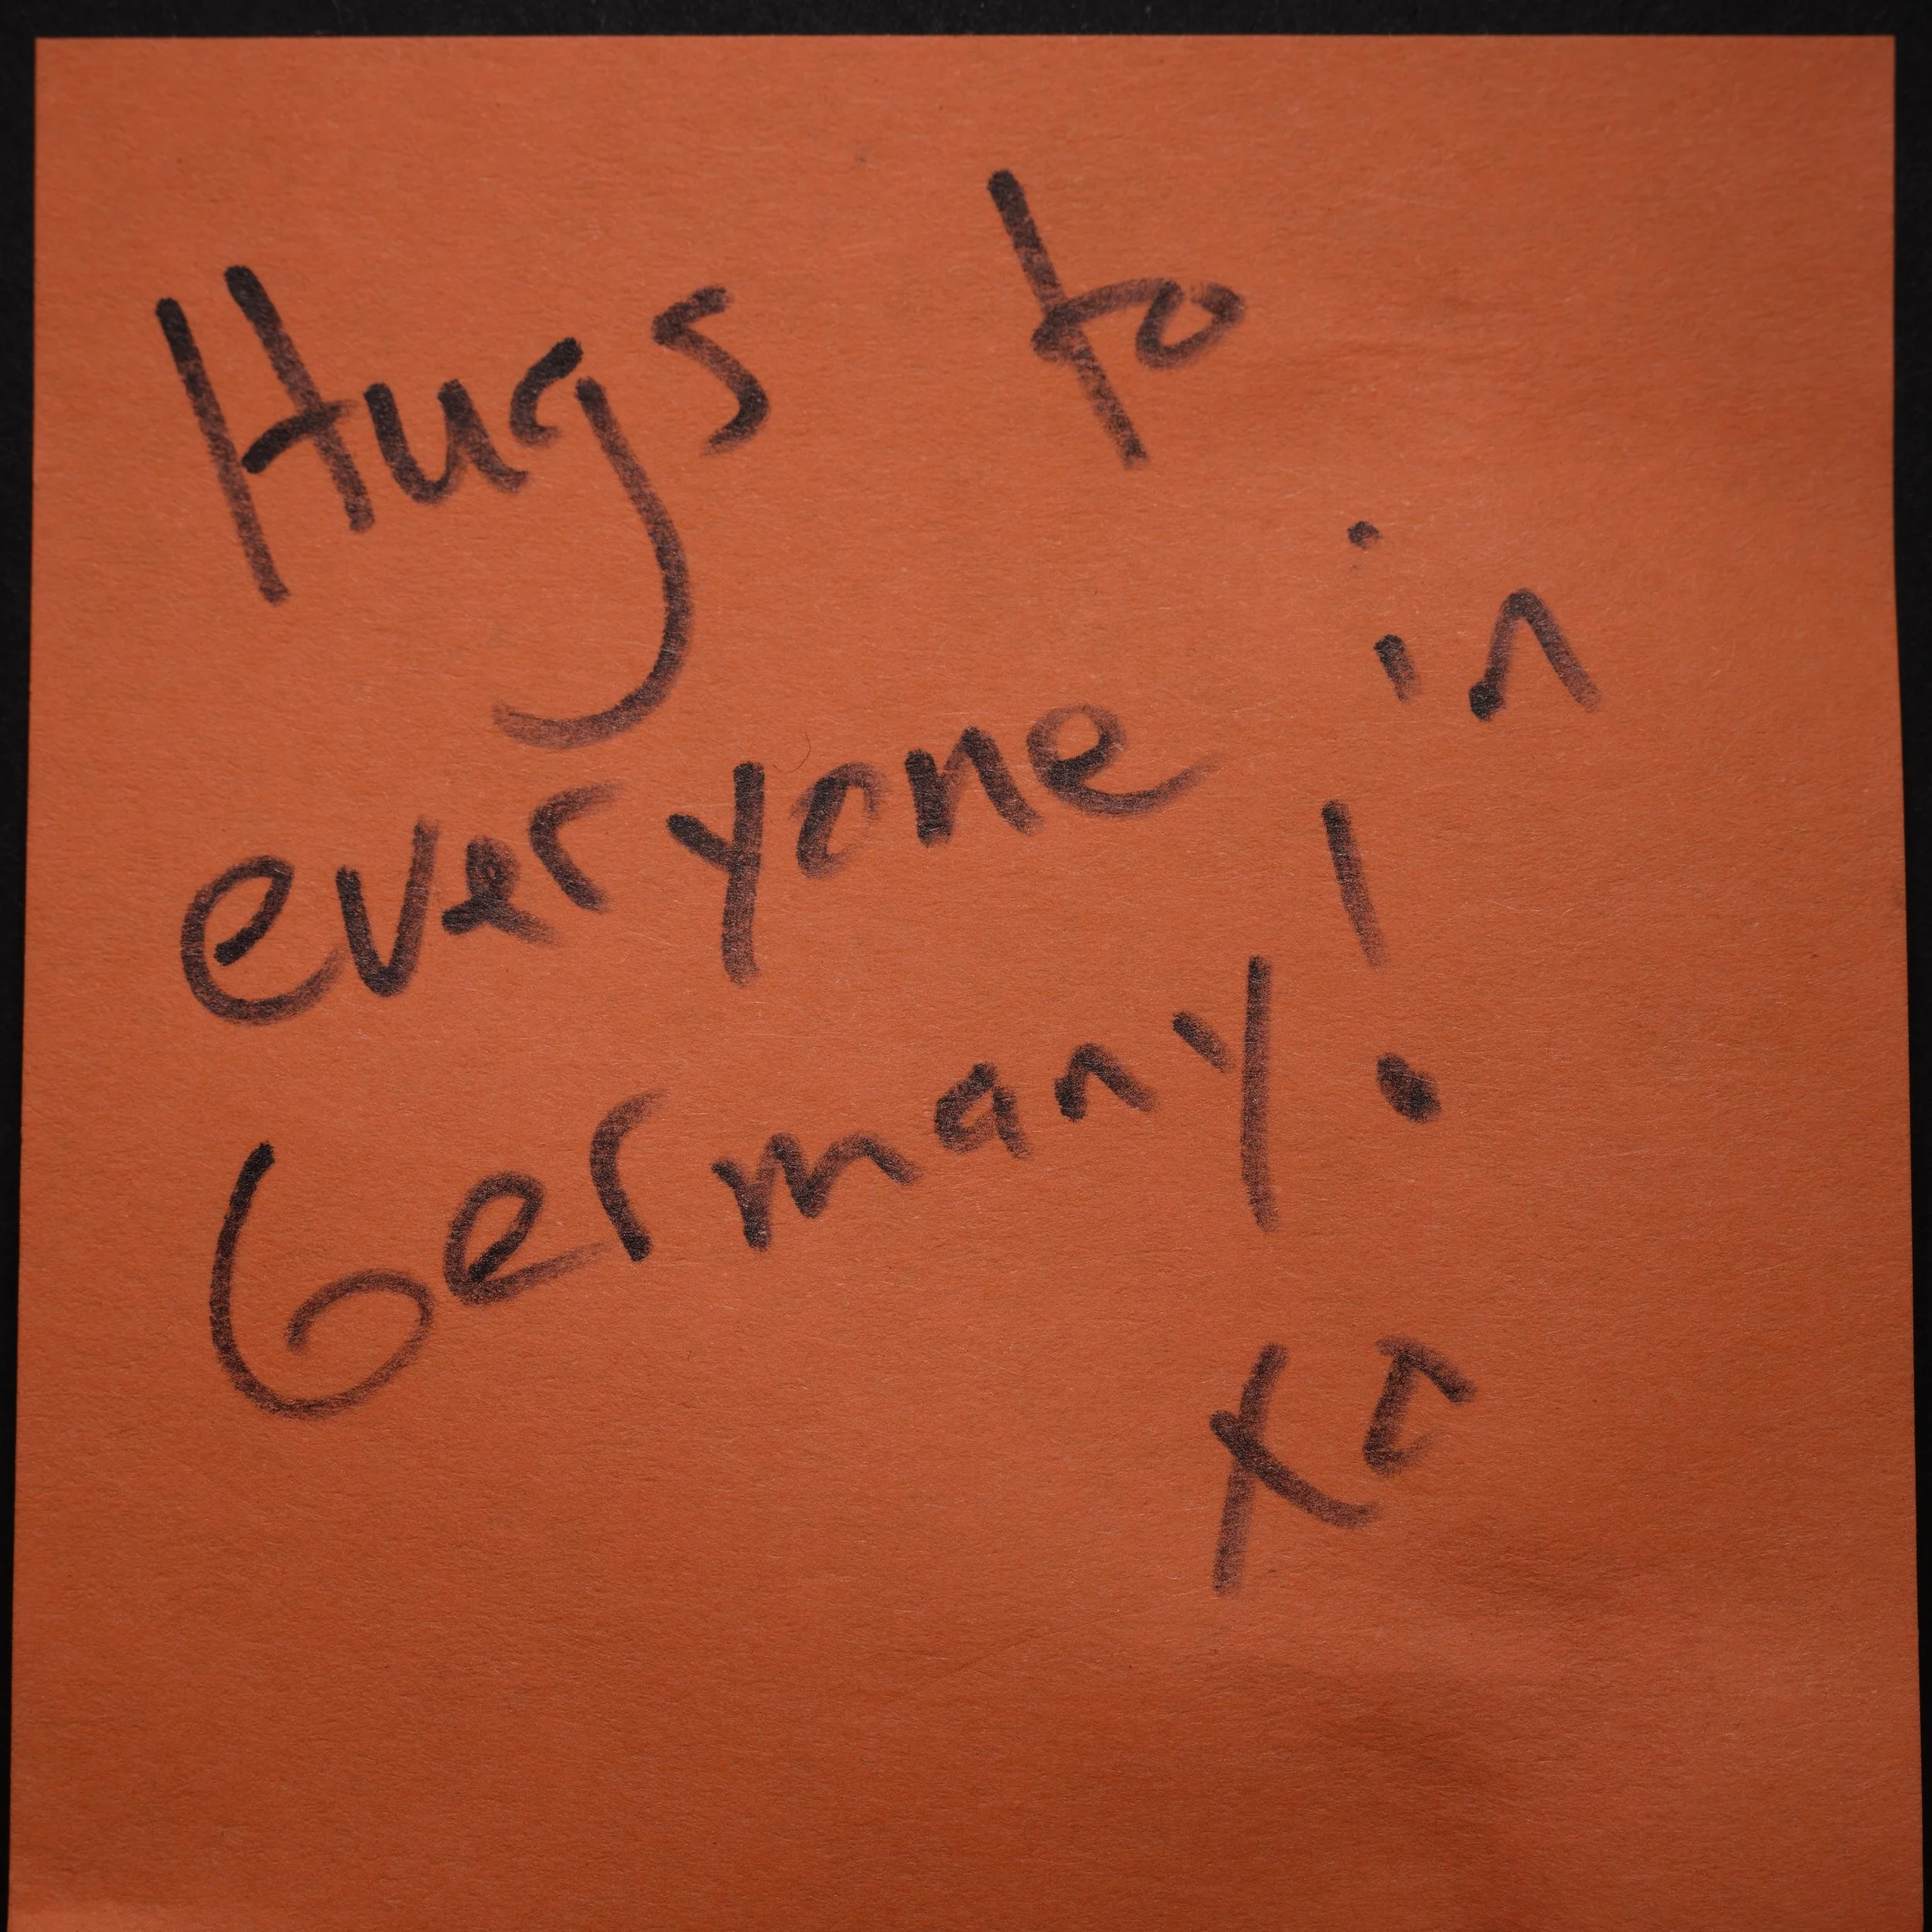 Hugs to
everyone in
Germany!
xo